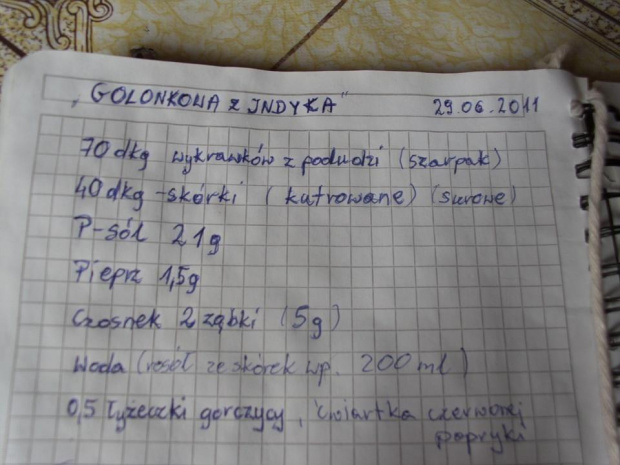 „GOLONKOWA z INDYKA" 29.06.2011
70 dkg wykrawków z podudzi (szarpak)
40 dkg - skórki (kutrowane) (surowe)
P-sól 21g
Pieprz 1,5g
Czosnek 2 ząbki (5g)
Woda (rosół ze skórek wp. 200 ml)
0,5 łyżeczki gorczycy, ćwiartka czerwonej
papryki